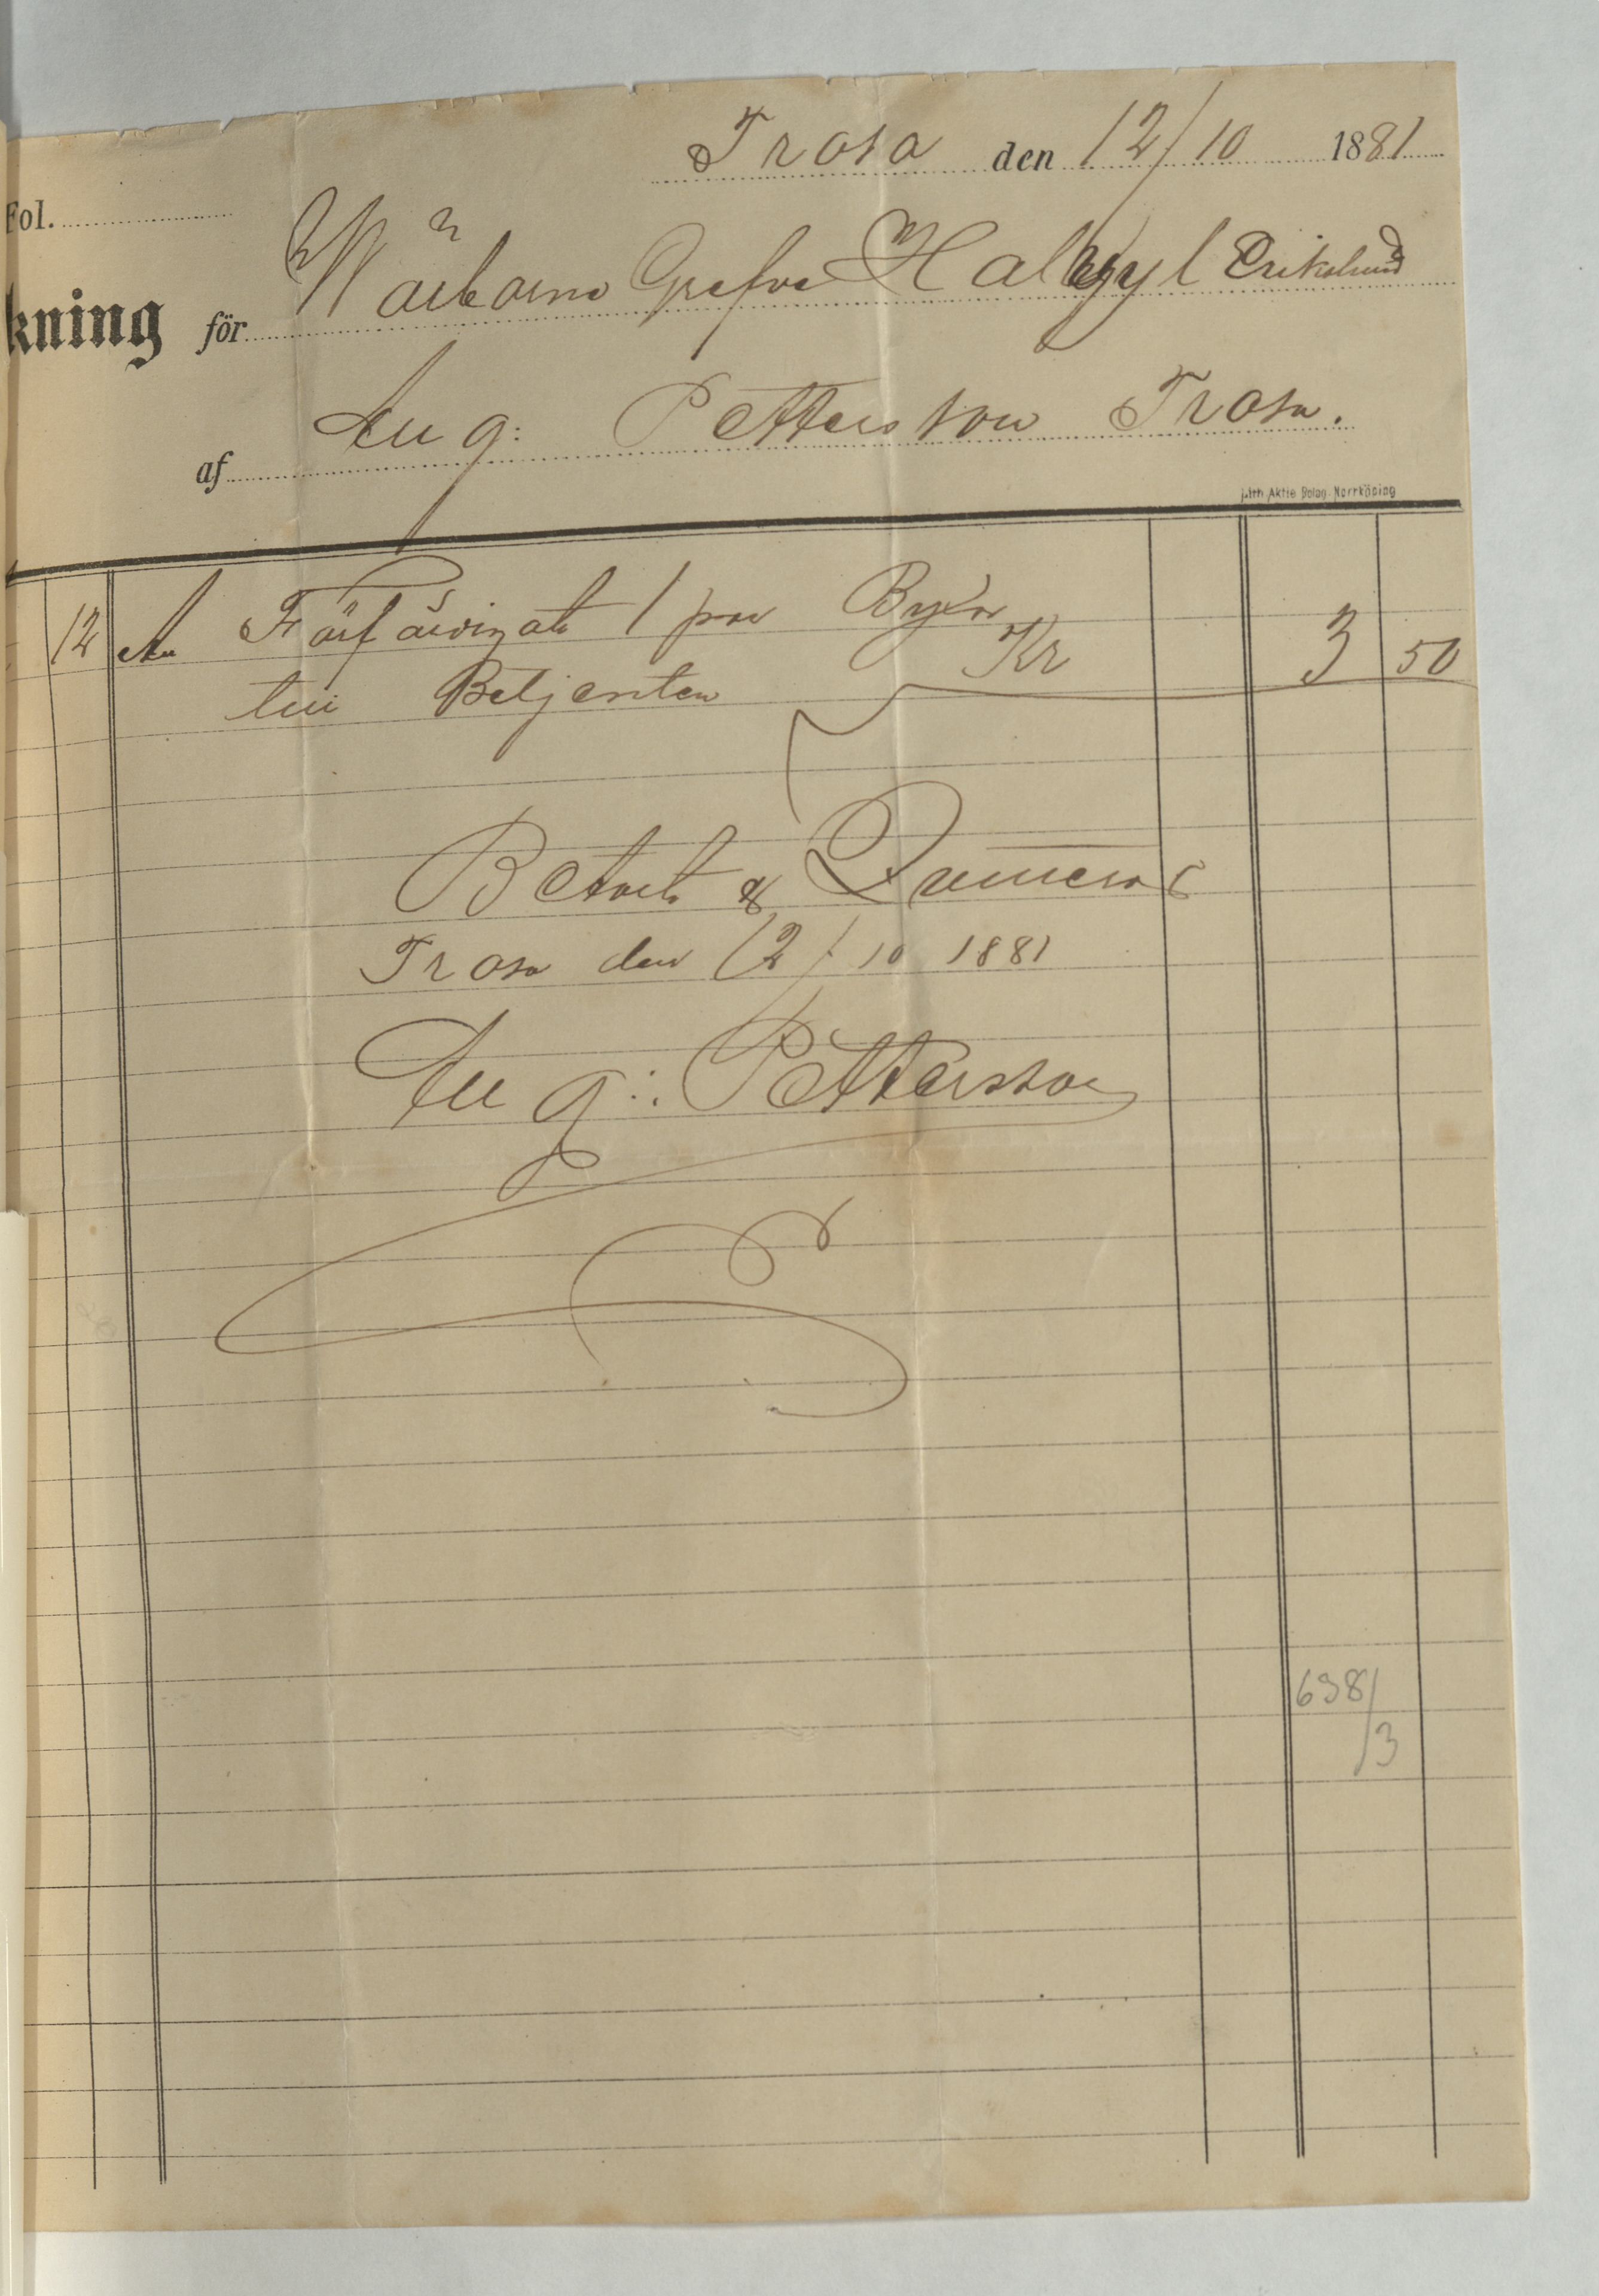 Trosa den 12/10 1881
Fol.
kning för Wälborne Grefve Hallwyl Erikslund
af Aug: Pettersson Trosa.
Lith. Aktie Bolag. Norrköping
12 An Förfärdigat 1 par Byxor
Kr 3 50
till Betjenten
Betalt & Qvitteras
Trosa den 12/10 1881
Aug: Pettersson
638/3